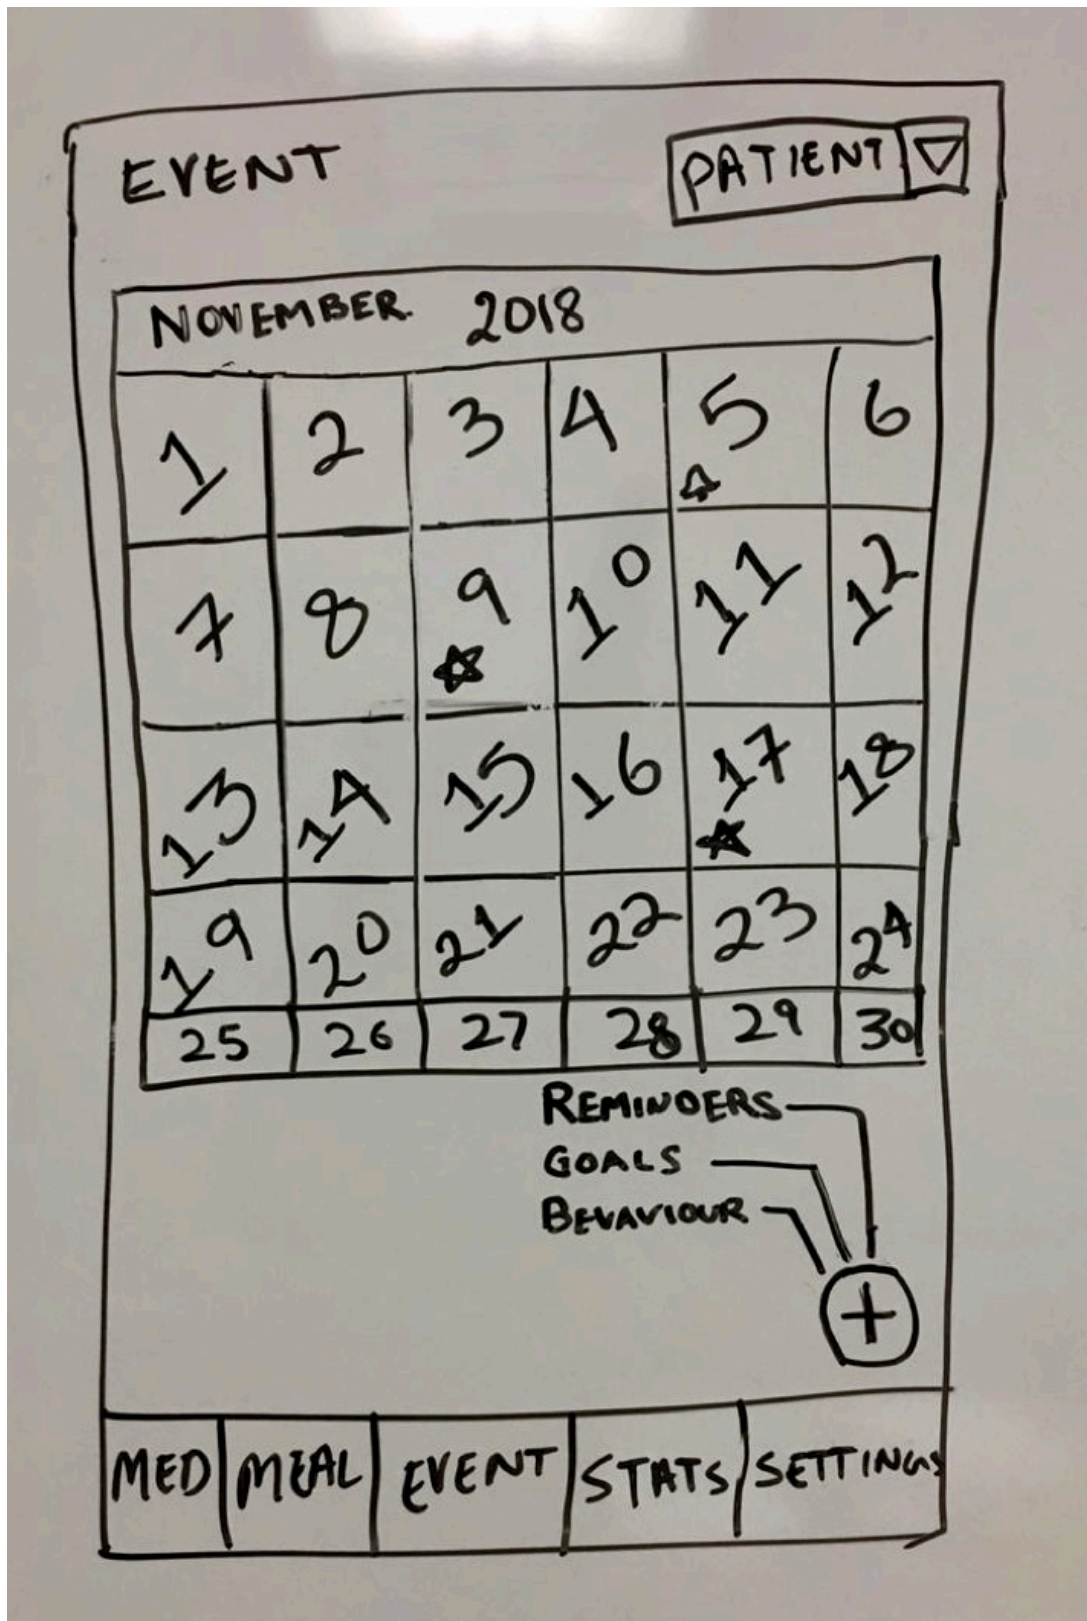 EVENT
PATIENT
NOVEMBER 2018
1 2 3 4 5 6
7 8 9 10 11 12
13 14 15 16 17 18
19 20 21 22 23 24
25 26 27 28 29 30
REMINDERS
GOALS
BEVAVIOUR
+
MED MEAL EVENT STATS SETTINGS